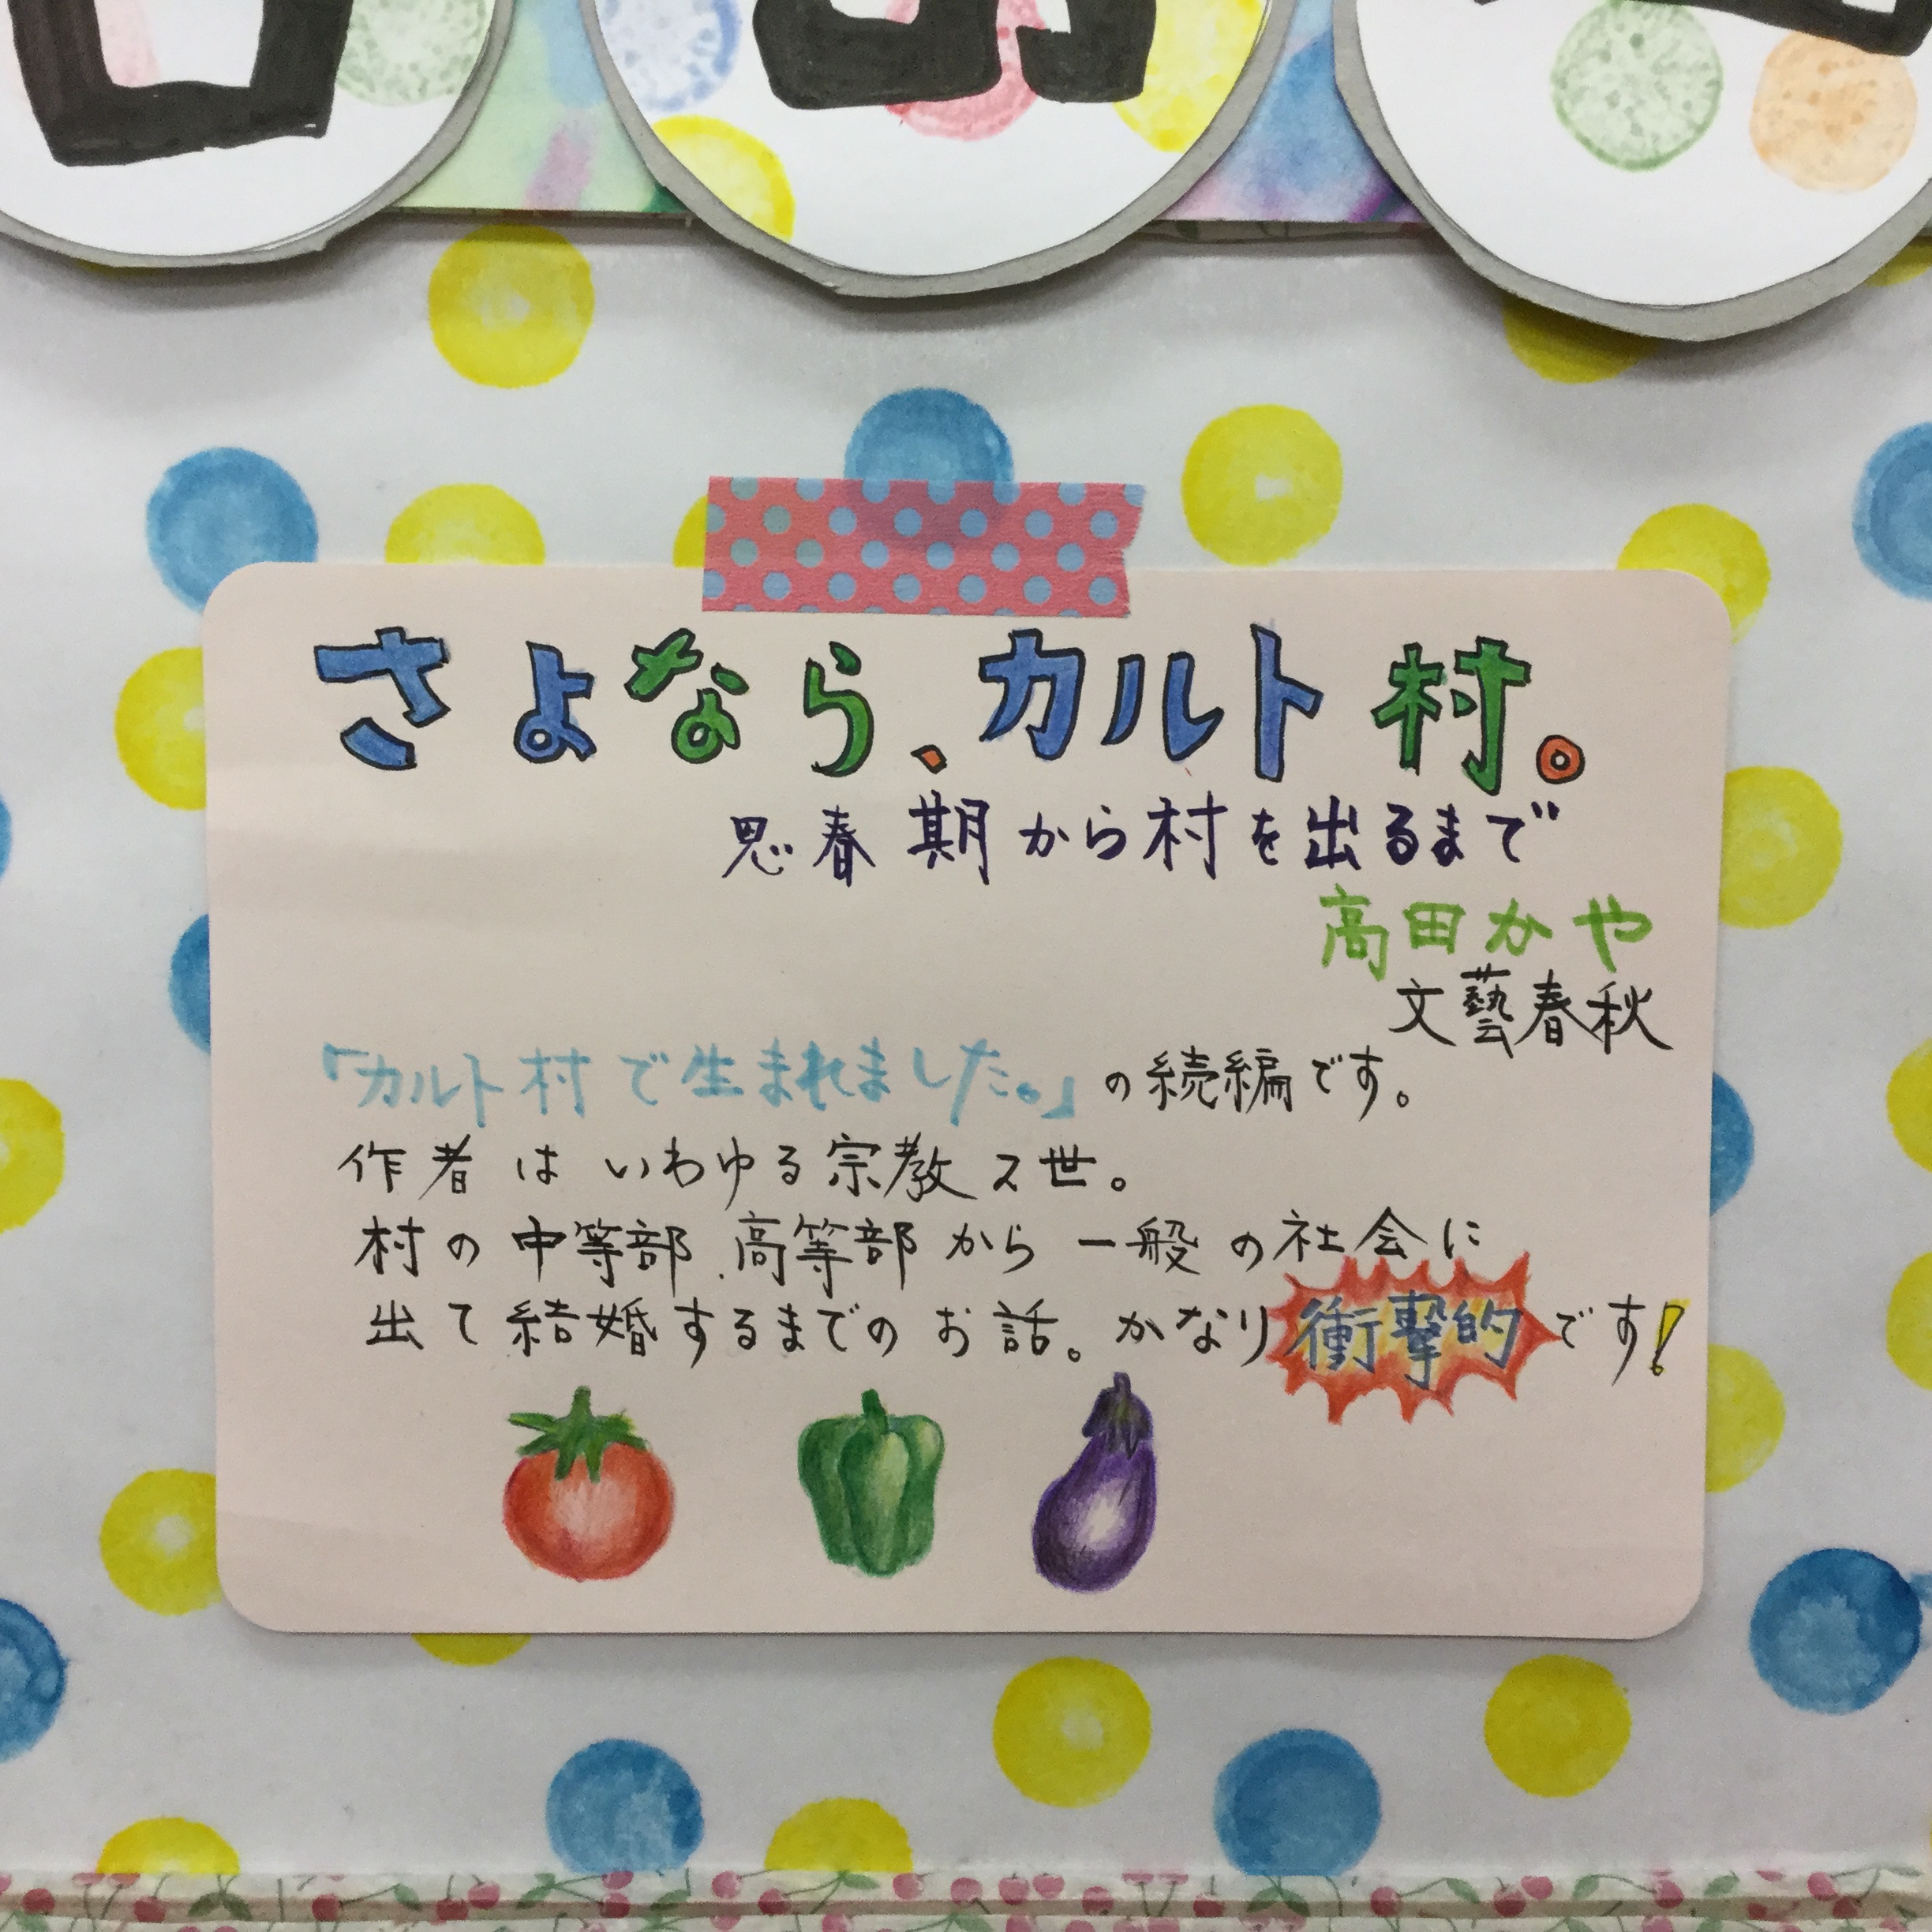 さよなら、カルト村。
思春期から村を出るまで
高田かや
文藝春秋
「カルト村で生まれました。」の続編です。
作者はいわゆる宗教2世。
村の中等部、高等部から一般の社会に
出て結婚するまでのお話。かなり衝撃的です!